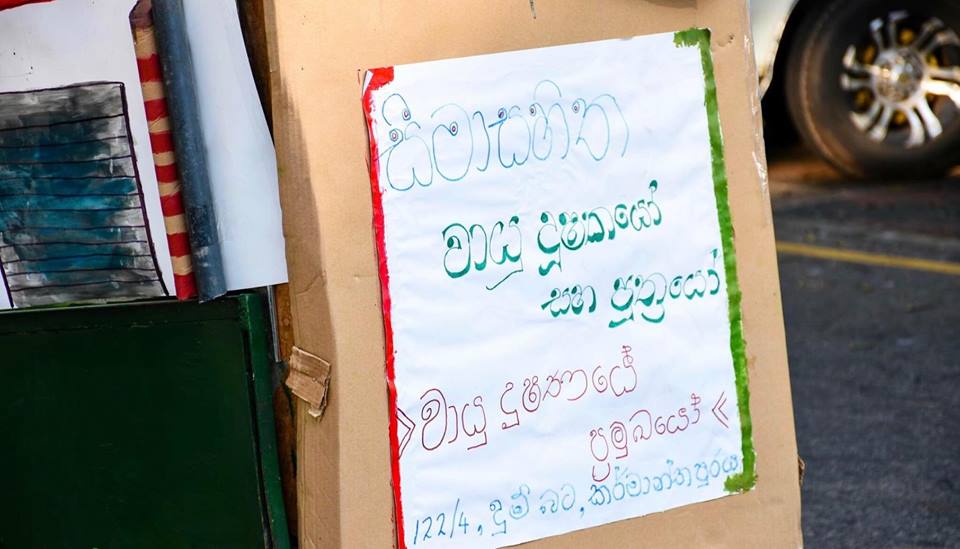 සීමාසහිත
වායු දූෂකයෝ
සහ පුත්‍රයෝ
වායු දූෂණයේ
ප්‍රමුඛයෝ
122/4, දුම් බට, කර්මාන්තපුරය